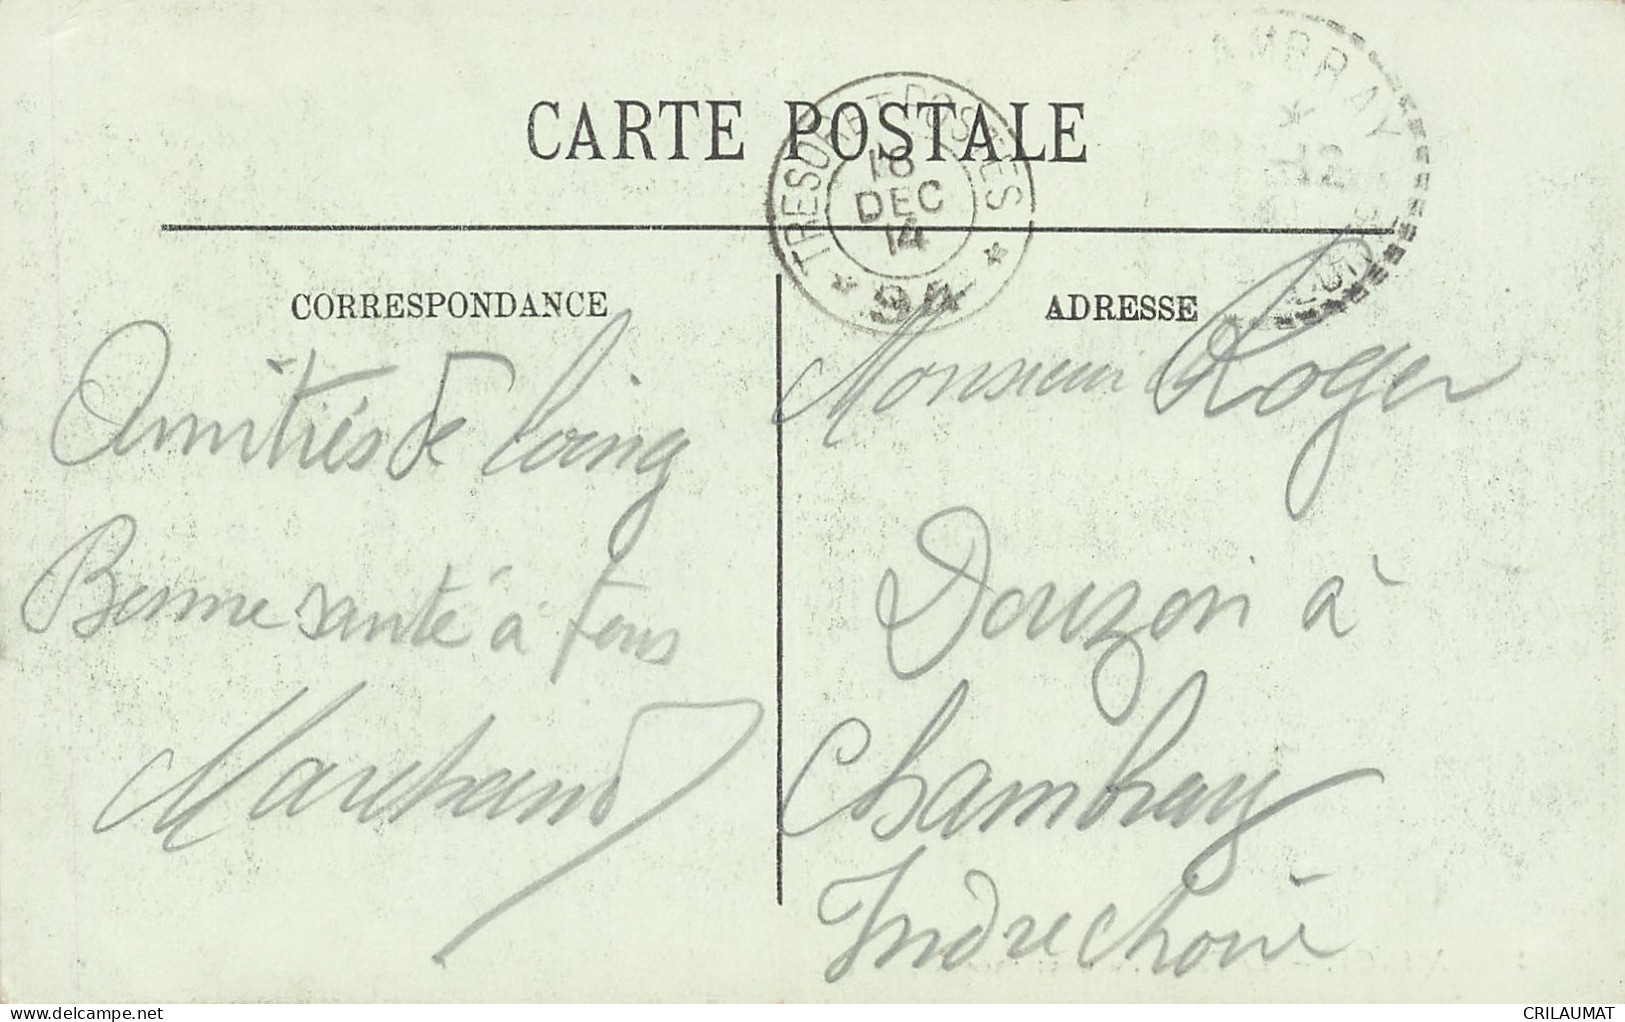 CARTE POSTALE
TRESOR ET POSTES
18
DEC
14
* 94 *
AMBRAY
*
-12
CORRESPONDANCE
Amitiés de loing
Bonne santé à tous
Marchand
ADRESSE
Monsieur Roger
Douzon à
Chambray
Indre choire
delcampe.net
CRILAUMAT